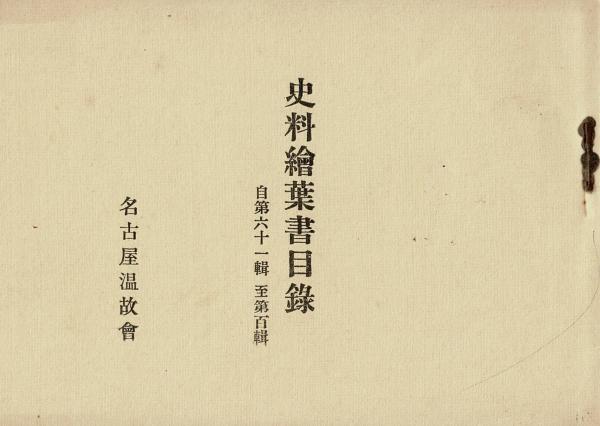 史料繪葉書目錄
自第六十一輯 至第百輯
名古屋温故會